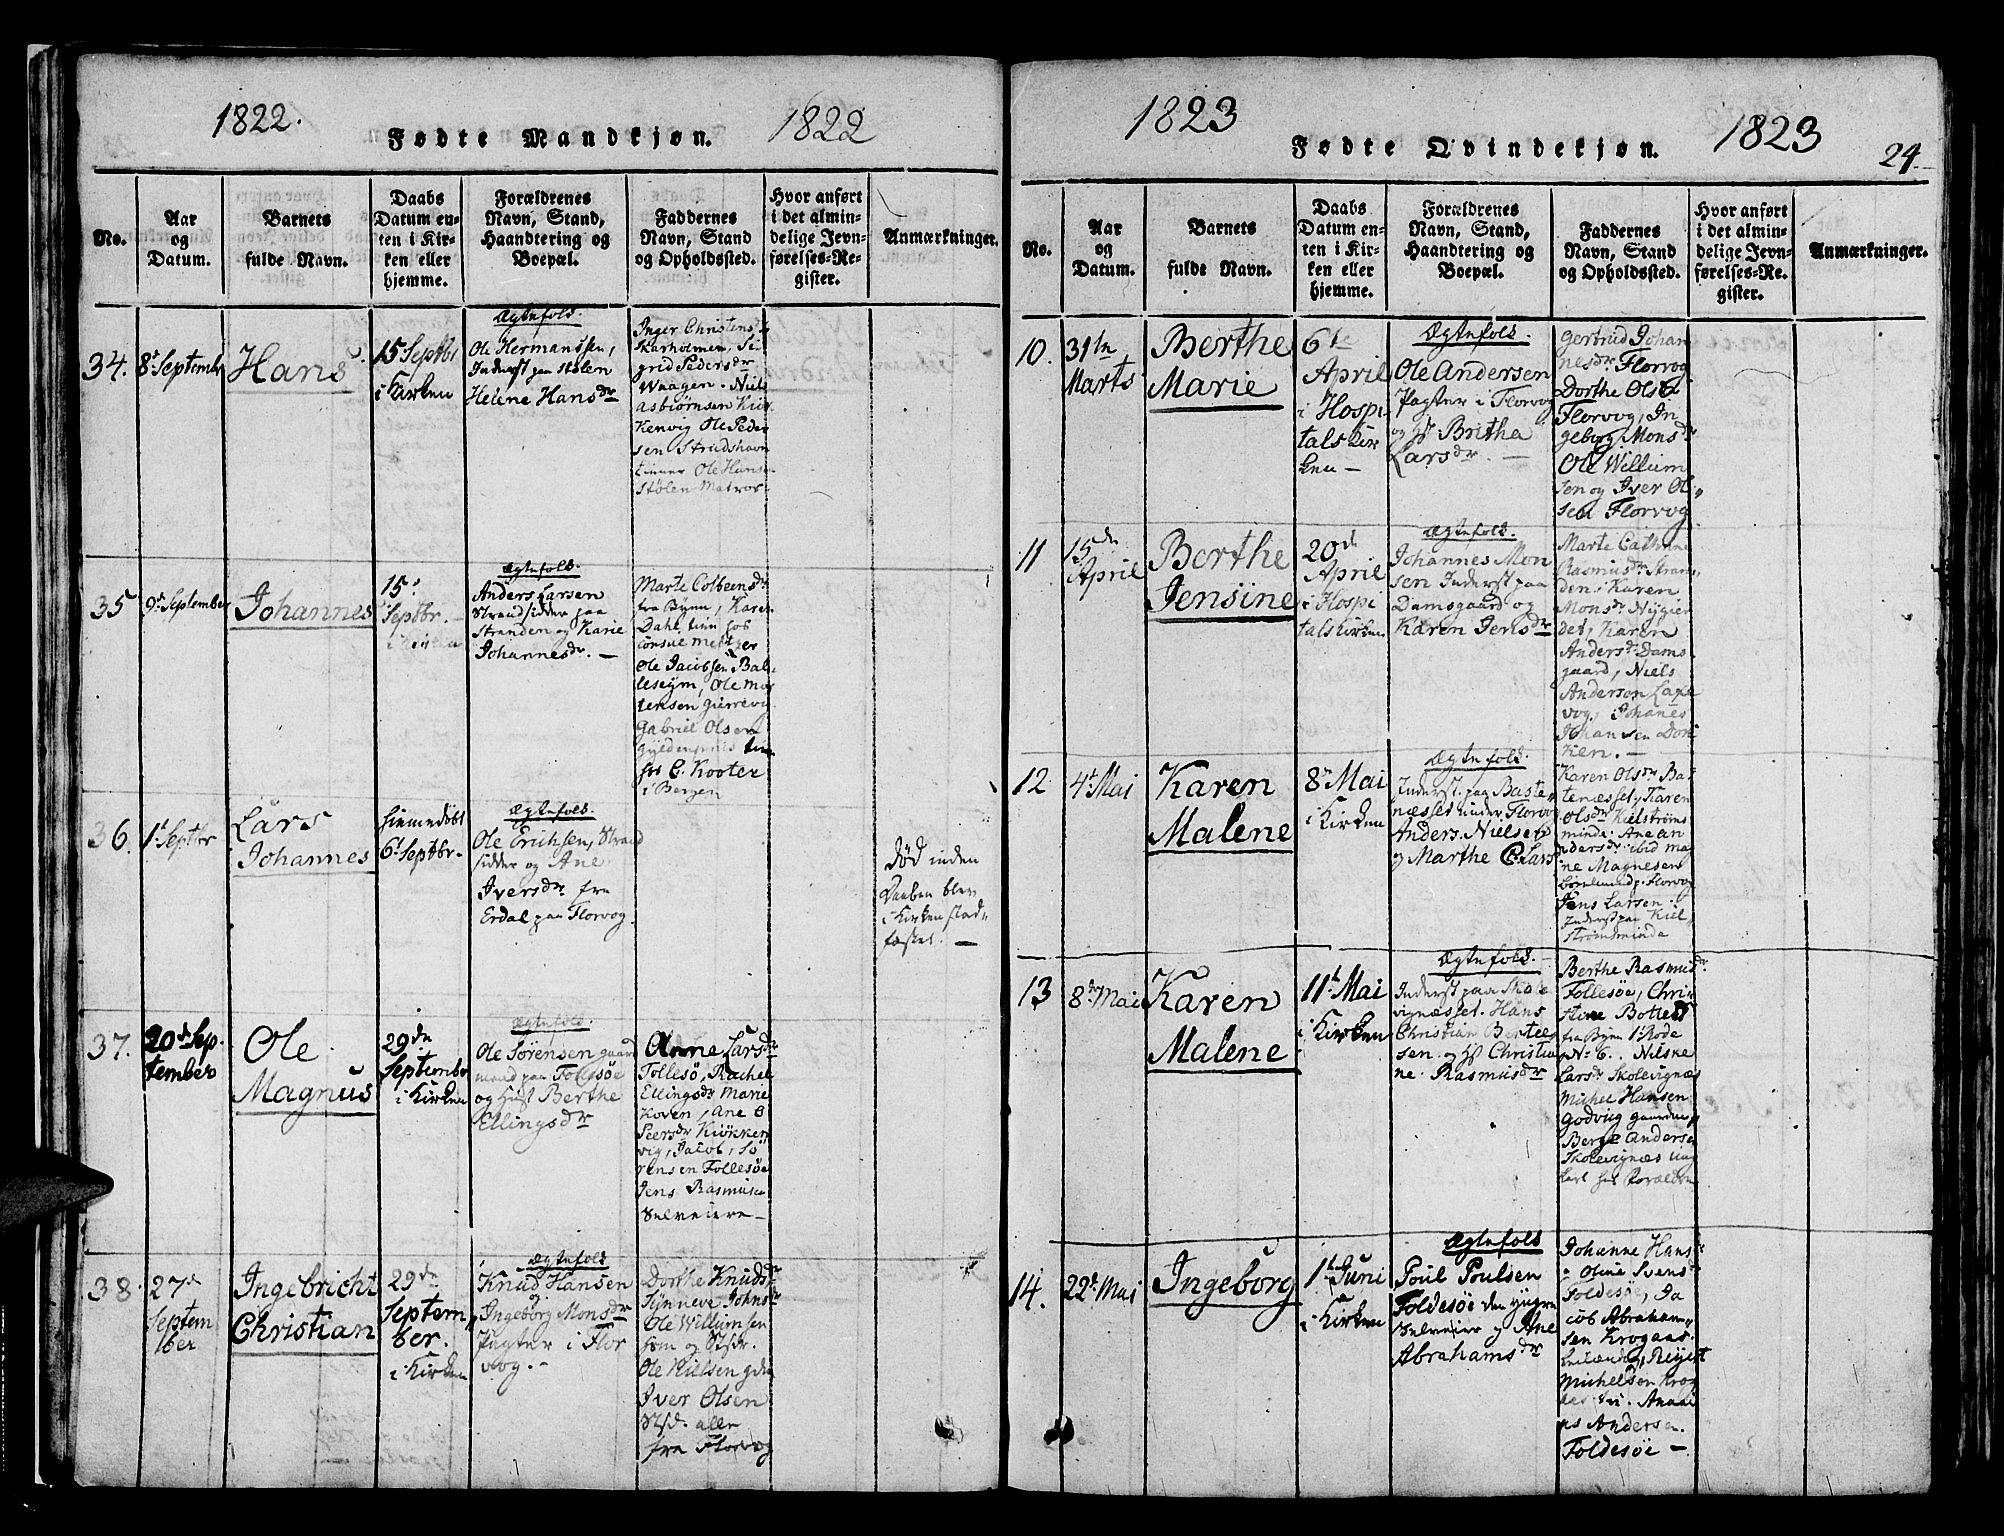 1822.
Fødte Mandkjøn.
1822
No.
Aar
og
Datum.
Barnets
fulde Navn.
Daabs
Datum en-
ten i Kir-
ken eller
hjemme.
Forældrenes
Navn, Stand,
Haandtering og
Boepæl.
Faddernes
Navn, Stand
og Opholdssted.
Hvor anført
i det almin-
delige Jevn-
førelses-Re-
gister.
Anmærkninger.
34.
8de September
Hans
15 Septbr
i Kirken
Ægtefolk.
Ole Hermanssen,
Inderst paa Stolen
Helene Hansdr
Inger Christensdr
Skarholmen, Si
grid Pedersdr
Waagen. Niels
Asbiørnsen Kiir
Kenvig Ole Peder
sen Strudshavn
Ole Hansen
Stølen Matros.
35
9de September
Johannes
15de
Septbr.
i Kirken
Ægtefolk.
Anders Larsen
Strandsidder paa
Stranden og Karie
Johannesdr. —
Marte Colbeensdr
fra Byen, Karen
Dahl, hos
Ole Jacobsen Bal
lesejm, Ole Mor
tensen
Gabriel Olsen
hos C. Kooter
i Bergen
36.
1te Septbr
Lars
Johannes
hiemedøbt
6te Septbr.
Ægtefolk.
Ole Erichsen, Strand
sidder og Ane
Iversdr fra
Erdal paa Florvog.
Død inden
Daaben blev
i Kirken stad-
fæstet. —
37.
20de Sep.
tember
Ole
Magnus
29de
Septembr
i Kirken
Ægtefolk.
Ole Sørensen gaard
mand paa Follesøe
og Hust Berthe
Ellingsdr
Anne Larsdr
Follesø, Rachel
Ellingsdr Marie
Hoven, Ane
Peersdr Kiøkken
vig, Jacob Sø
rensen Follesøe
Jens Rasmusen
Selveiere —
38.
27de
Septem
ber
Ingebricht
Christian
29de
Septem
ber.
i Kirken
Ægtefolk
Knud Hansen
og
Ingeborg Monsdr
Pagter i Flor
vog. —
Dorthe Knudsdr
Synneve Johnsdr
Ole Willumsen
Ole Nielsen
Iver Olsen
alle
fra Florvog
1823
Fødte Qvindekjøn.
1823
24.
No.
Aar
og
Datum.
Barnets
fulde Navn.
Daabs
Datum en-
ten i Kir-
ken eller
hjemme.
Forældrenes
Navn, Stand,
Haandtering og
Boepæl.
Faddernes
Navn, Stand
og Opholdssted.
Hvor anført
i det almin-
delige Jevn-
førelses-Re-
gister.
Anmærkninger.
10.
31te
Marts
Berthe
Marie
6te
April
i Hospi
talskir
ken —
Ægtefolk.
Ole Andersen
Pagter i Florvog
og H Britha
Larsdr. —
Gertrud Johan
nesdr Florvog
Dorthe Olsdr
Florvog, In
geborg Monsdr
Ole Willum
sen og Iver Ol-
sen Florvog
11
15de
April
Berthe
Jensine
20de
April
i Hospi
talskirken
Ægtefolk.
Johannes Mon
sen Inderst paa
Damsgaard og
Karen Jensdr
Marte Cathrine
Rasmusdr Stran
den: Karen
Monsdr Nygier
det, Karen
Andersdr Dams-
gaard, Niels
Anderson Laxe
vog, Johanes
Johansen Dok
ken. —
12
4de Mai
Karen
Malene
8de Mai
i Kirken
Ægtefolk.
Inderst paa Baste-
næsset under Florvog
Anders Nielsen
og Marthe Larsdr
Karen Olsdr Ba-
stenæsset, Karen
Olsdr Kielstrøms
minde. Ane An
dersdr ibid
Magnesen
Florvog
Jens Larsen
Inderst paa Kiel
strømsminde
13
8de Mai
Karen
Malene
11te Mai
i Kirken
Ægtefolk.
Inderst paa Skole
vignæsset. Hans
Christian Bertel
sen og H Christia
ne Rasmusdr
Berthe Rasmusdr
Follesøe, Chri-
stine
fra Byen 1 Rode
No 6. Nilske
Larsdr Skolevignæs
Michel Hansen
Godvig gaardm
Berge Andersen
Skolevignæs Ung
karl hos Forældre
14.
22de Mai
Ingeborg
1te Juni
i Kirken
Ægtefolk
Poul Poulsen
Foldesøe den yngre
Selveier og Ane
Abrahamsdr
Johanne Hansdr
Oline Svensdr
Foldesøe, Ja
cob Abraham-
sen Krogaas
Michelsen Krog
Andersen.
Foldesøe —